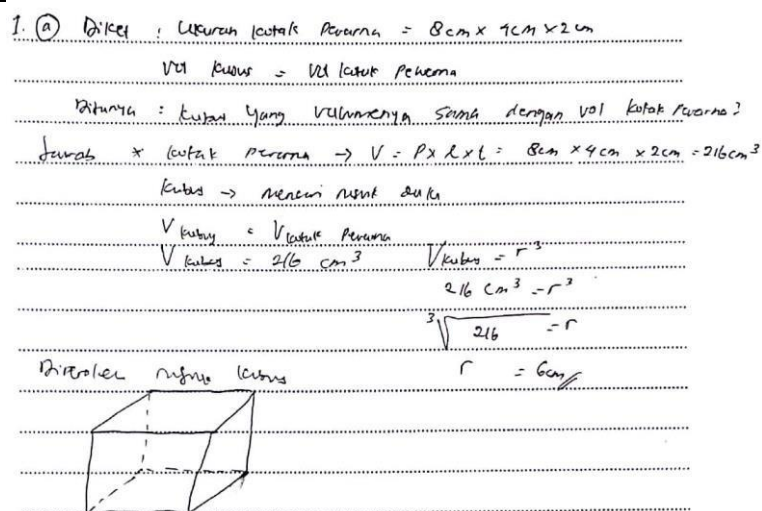 1. (a) Diket : Ukuran kotak pewarna = 8cm x 4cm x 2cm
Vol kubus = Vol kotak pewarna
Ditanya : kubus yang volumenya sama dengan vol kotak pewarna?
Jawab * kotak pewarna → V = P x l x t = 8cm x 4cm x 2cm = 216cm³
Kubus → mencari rusuk dulu
V kubus = V kotak pewarna
V kubus = 216 cm³ V kubus = r³
216 cm³ = r³
³√216 = r
Diperoleh rusuk kubus r = 6cm //